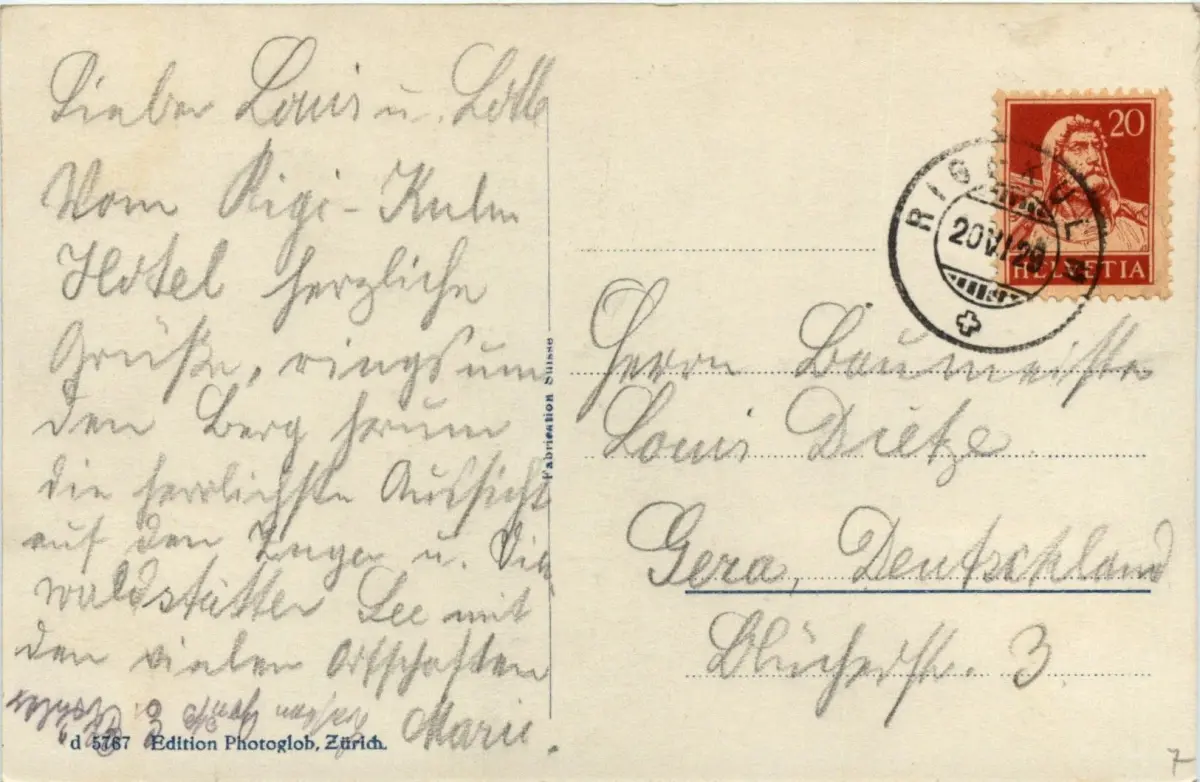 Lieber Louis u. Lotte
Vom Rigi-Kulm
Hotel herzliche
Grüße, rings um
den Berg herum
die herrlichste Aussicht
auf den Zuger u. Vier
waldstätter See mit
den vielen Ortschaften
Marie.
d 5767 Edition Photoglob, Zürich.
Fabrication Suisse
20
HELVETIA
RIGI KULM
20 VI 29
Herrn Baumeister
Louis Dietze
Gera, Deutschland
Blücherstr. 3
7